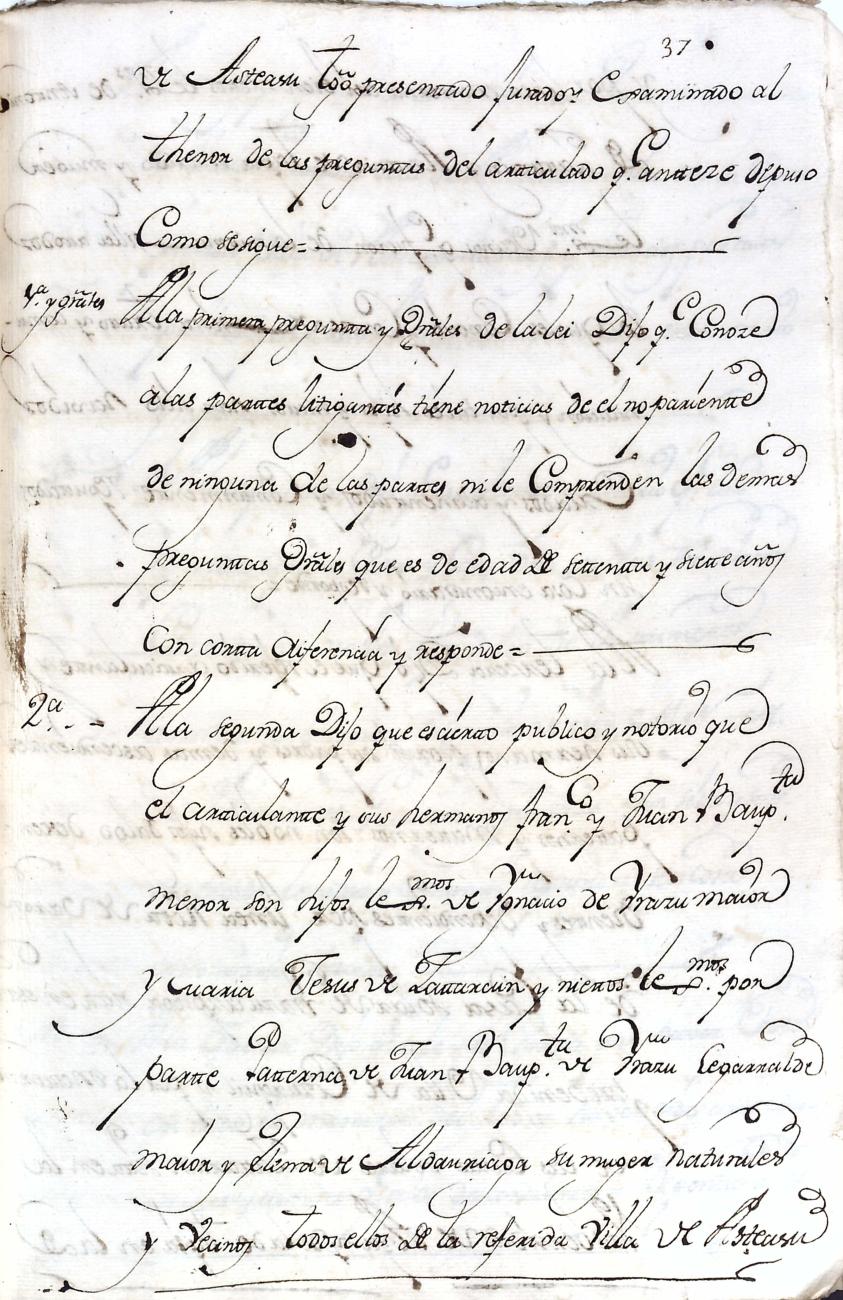 37
de Asteasu tgõ presenttado Jurado y Examinado al
thenor de las pregunttas del articulado q.e antteze depuso
Como se sigue =
1.a y grãles
Alla primera preguntta y Grãles de la lei Dijo q.e Conoze
a las parttes litiganttes tiene noticias de el no parienttte
de ninguna de las parttes ni le Comprenden las demas
pregunttas Grãles que es de edad de settentta y siette años
Con cortta diferencia y responde =
2.a
Alla segunda Dijo que es ciertto publico y notorio que
el articulantte y sus hermanos fran.co y Juan Baup.tta
menor son hijos lex.mos de Ygnacio de Yrazu maior
y Maria Jesus de Lattarain y niettos lex.mos por
partte Patterna de Juan Baup.ta de Yrazu Legarralde
maior y Elena de Aldauriaga su muger naturales
y Vecinos todos ellos de la referida Villa de Asteasu